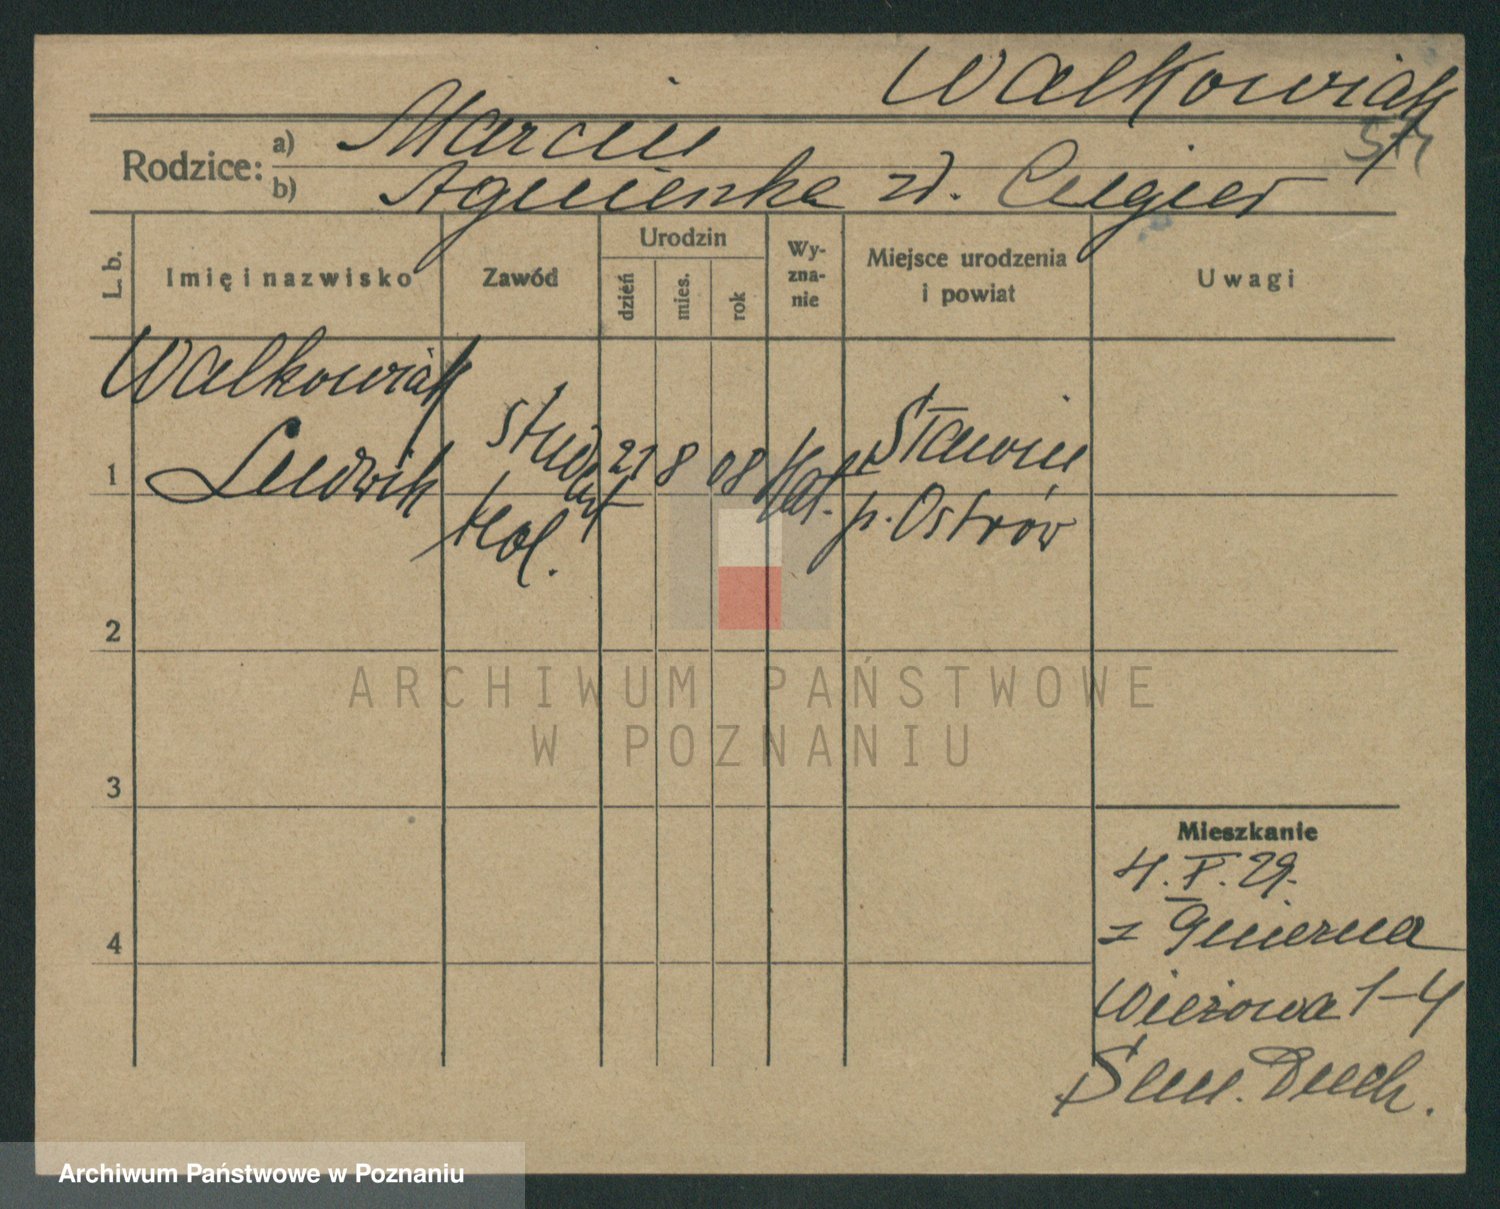 Walkowiak
Rodzice: a) Marcin
b) Agnieszka zd. Cegieł
L. b.
Imię i nazwisko
Zawód
Urodzin
dzień
mies.
rok
Wy-
zna-
nie
Miejsce urodzenia
i powiat
Uwagi
Walkowiak
1 Ludwik
student
kol.
21 8 08
kat.
Sławin
p. Ostrów
2
3
4
Mieszkanie
4. X. 29.
z Gniezna
Wieżowa 1-4
Sem. Duch.
ARCHIWUM PAŃSTWOWE
W POZNANIU
Archiwum Państwowe w Poznaniu